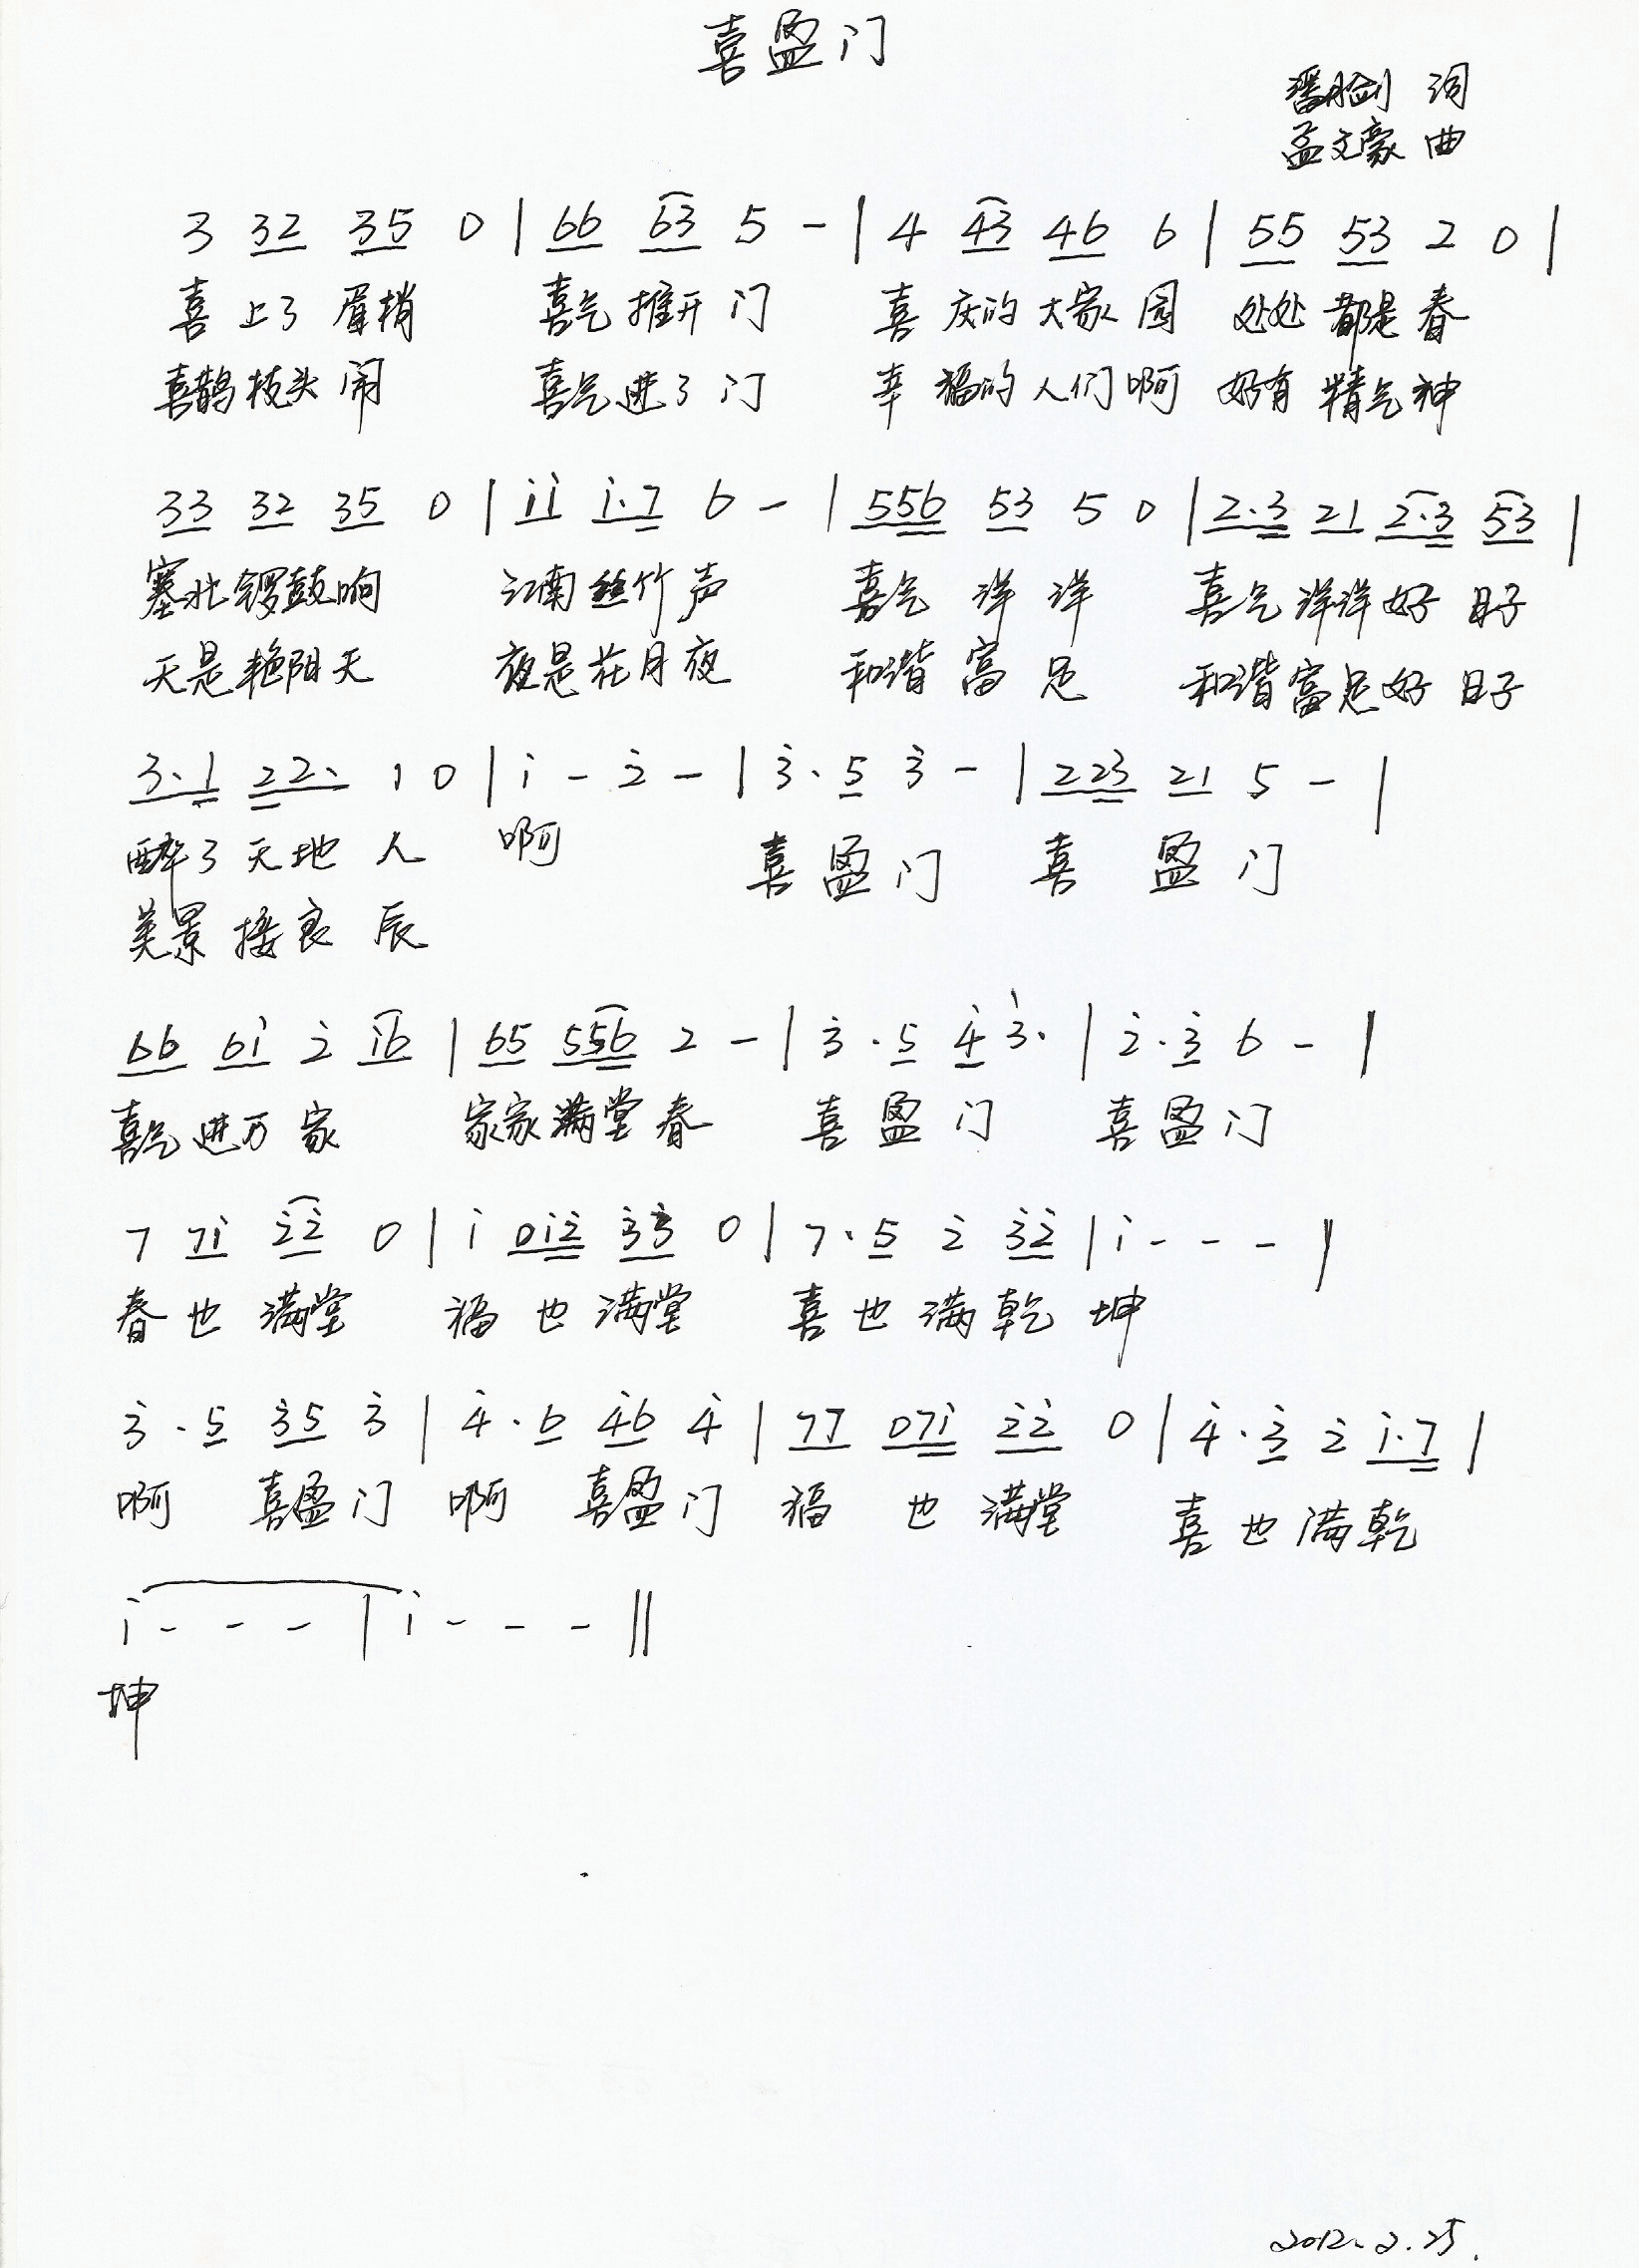 喜盈门
词
孟文豪 曲
3 32 35 0 | 66 63 5 - | 4 43 46 6 | 55 53 2 0 |
喜 上了 眉梢 喜气 推开 门 喜 庆的 大家 园 处处 都是 春
喜鹊 枝头 闹 喜气 进了 门 幸 福的 人们 啊 好有 精气 神
33 32 35 0 | i̇i̇ i̇·7 6 - | 556 53 5 0 | 2·3 21 2·3 53 |
塞北 锣鼓 响 江南 丝竹 声 喜气 洋 洋 喜气 洋洋 好 日子
天是 艳阳 天 夜是 花月 夜 和谐 富 足 和谐 富足 好 日子
3·1 22· 1 0 | i̇ - 2̇ - | 3̇· 5 3̇ - | 223 21 5 - |
醉了 天地 人 啊 喜 盈 门 喜 盈 门
美景 接良 辰
66 6i̇ 2̇ i̇6 | 65 556 2 - | 3̇· 5 4̇ 3̇· | 2̇· 3̇ 6 - |
喜气 进万 家 家家 满堂 春 喜 盈 门 喜 盈 门
7 7i̇ 2̇2̇ 0 | i̇ 0i̇2̇ 3̇3̇ 0 | 7· 5 2̇ 3̇2̇ | i̇ - - - |
春 也 满堂 福 也 满堂 喜 也 满 乾 坤
3̇· 5 3̇5 3̇ | 4̇· 6 4̇6 4̇ | 77 07i̇ 2̇2̇ 0 | 4̇· 3̇ 2̇ i̇·7 |
啊 喜盈 门 啊 喜盈 门 福 也 满堂 喜 也 满 乾
i̇ - - - | i̇ - - - ‖
坤
2012.2.25.